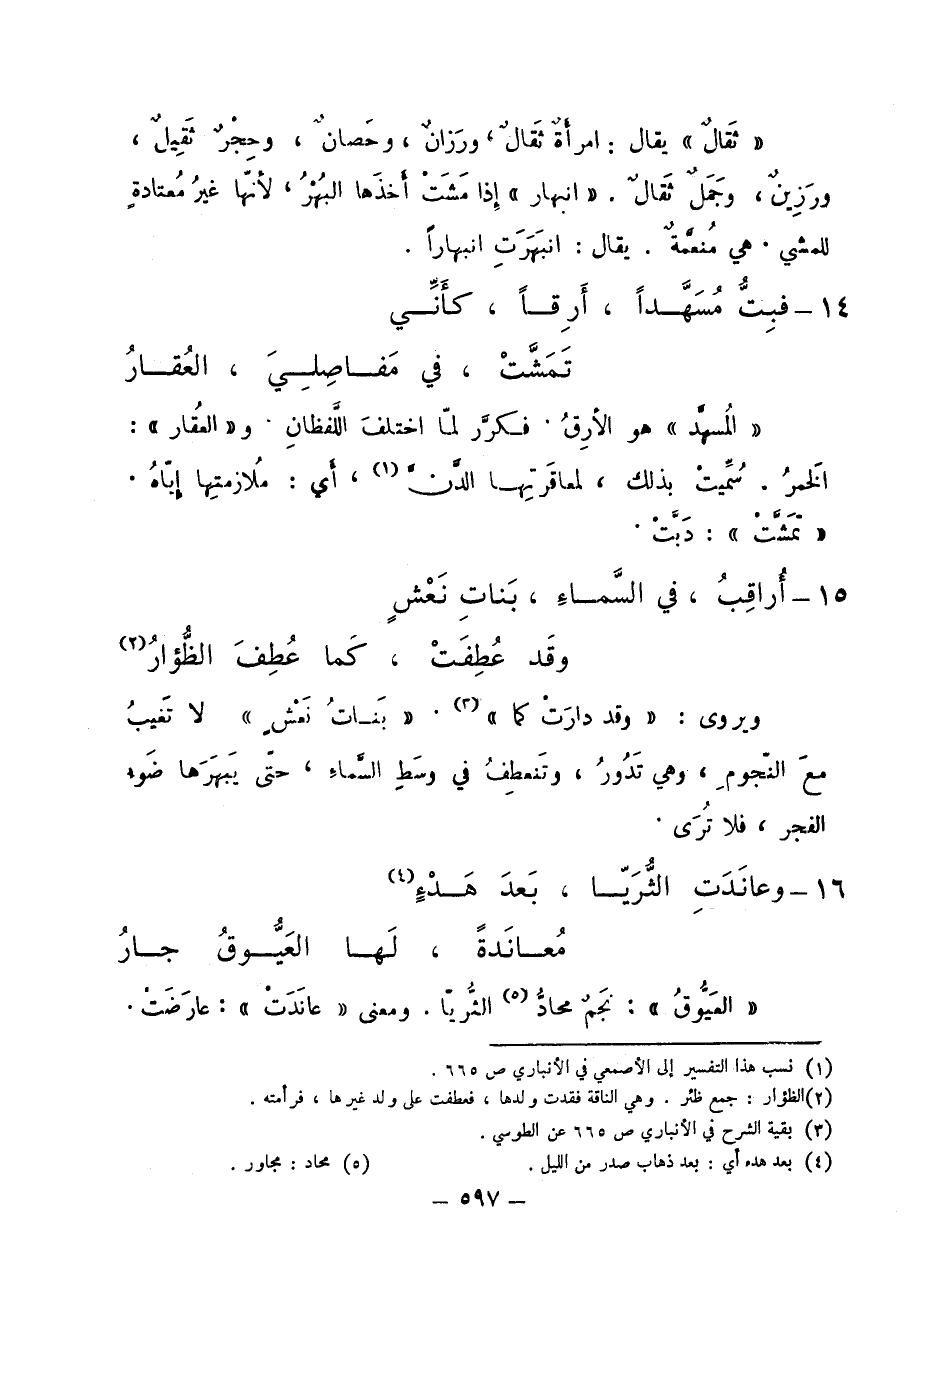 « ثَقالٌ » يقال : امرأَةٌ ثَقالٌ ، ورَزانٌ ، وحَصانٌ ، وحِجْرٌ ثَقِيلٌ ،
ورَزِينٌ ، وجَمَلٌ ثَقالٌ . « انبهار » إذا مَشَتْ أخذَها البُهْرُ ، لأنّها غيرُ مُعتادةٍ
للمشي . هي مُنعَّمةٌ . يقال : انبَهَرَتِ انبهاراً .
١٤ – فبِتُّ مُسَهَّداً ، أَرِقاً ، كأَنِّي
تَمَشَّتْ ، في مَفاصِلِيَ ، العُقارُ
« المُسهَّد » هو الأرِقُ . فكرَّر لمّا اختلفَ اللَّفظانِ . و « العُقار » :
الخمرُ . سُمِّيتْ بذلك ، لمعاقَرتِها الدَّنَّ (١) ، أي : مُلازمتِها إيّاهُ .
« تَمَشَّتْ » : دَبَّتْ .
١٥ – أُراقِبُ ، في السَّماءِ ، بَناتِ نَعْشٍ
وقَد عُطِفَتْ ، كَما عُطِفَ الظُّؤارُ (٢)
ويروى : « وقد دارَتْ كما » (٣) . « بَناتُ نَعْشٍ » لا تَغيبُ
معَ النّجومِ ، وهي تَدُورُ ، وتَنعطِفُ في وسَطِ السَّماءِ ، حتّى يَبهَرَها ضَوء
الفجر ، فلا تُرَى .
١٦ – وعانَدَتِ الثُّرَيّا ، بَعدَ هَدْءٍ (٤)
مُعانَدةً ، لَها العَيُّوقُ جارُ
« العَيُّوقُ » : نجَمٌ محادُّ (٥) الثُّريّا . ومعنى « عانَدَتْ » : عارَضَتْ .
(١) نسب هذا التفسير إلى الأصمعي في الأنباري ص ٦٦٥ .
(٢) الظؤار : جمع ظئر . وهي الناقة فقدت ولدها ، فعطفت على ولد غيرها ، فرأمته .
(٣) بقية الشرح في الأنباري ص ٦٦٥ عن الطوسي .
(٤) بعد هدء أي : بعد ذهاب صدر من الليل . (٥) محاد : مجاور .
– ٥٩٧ –